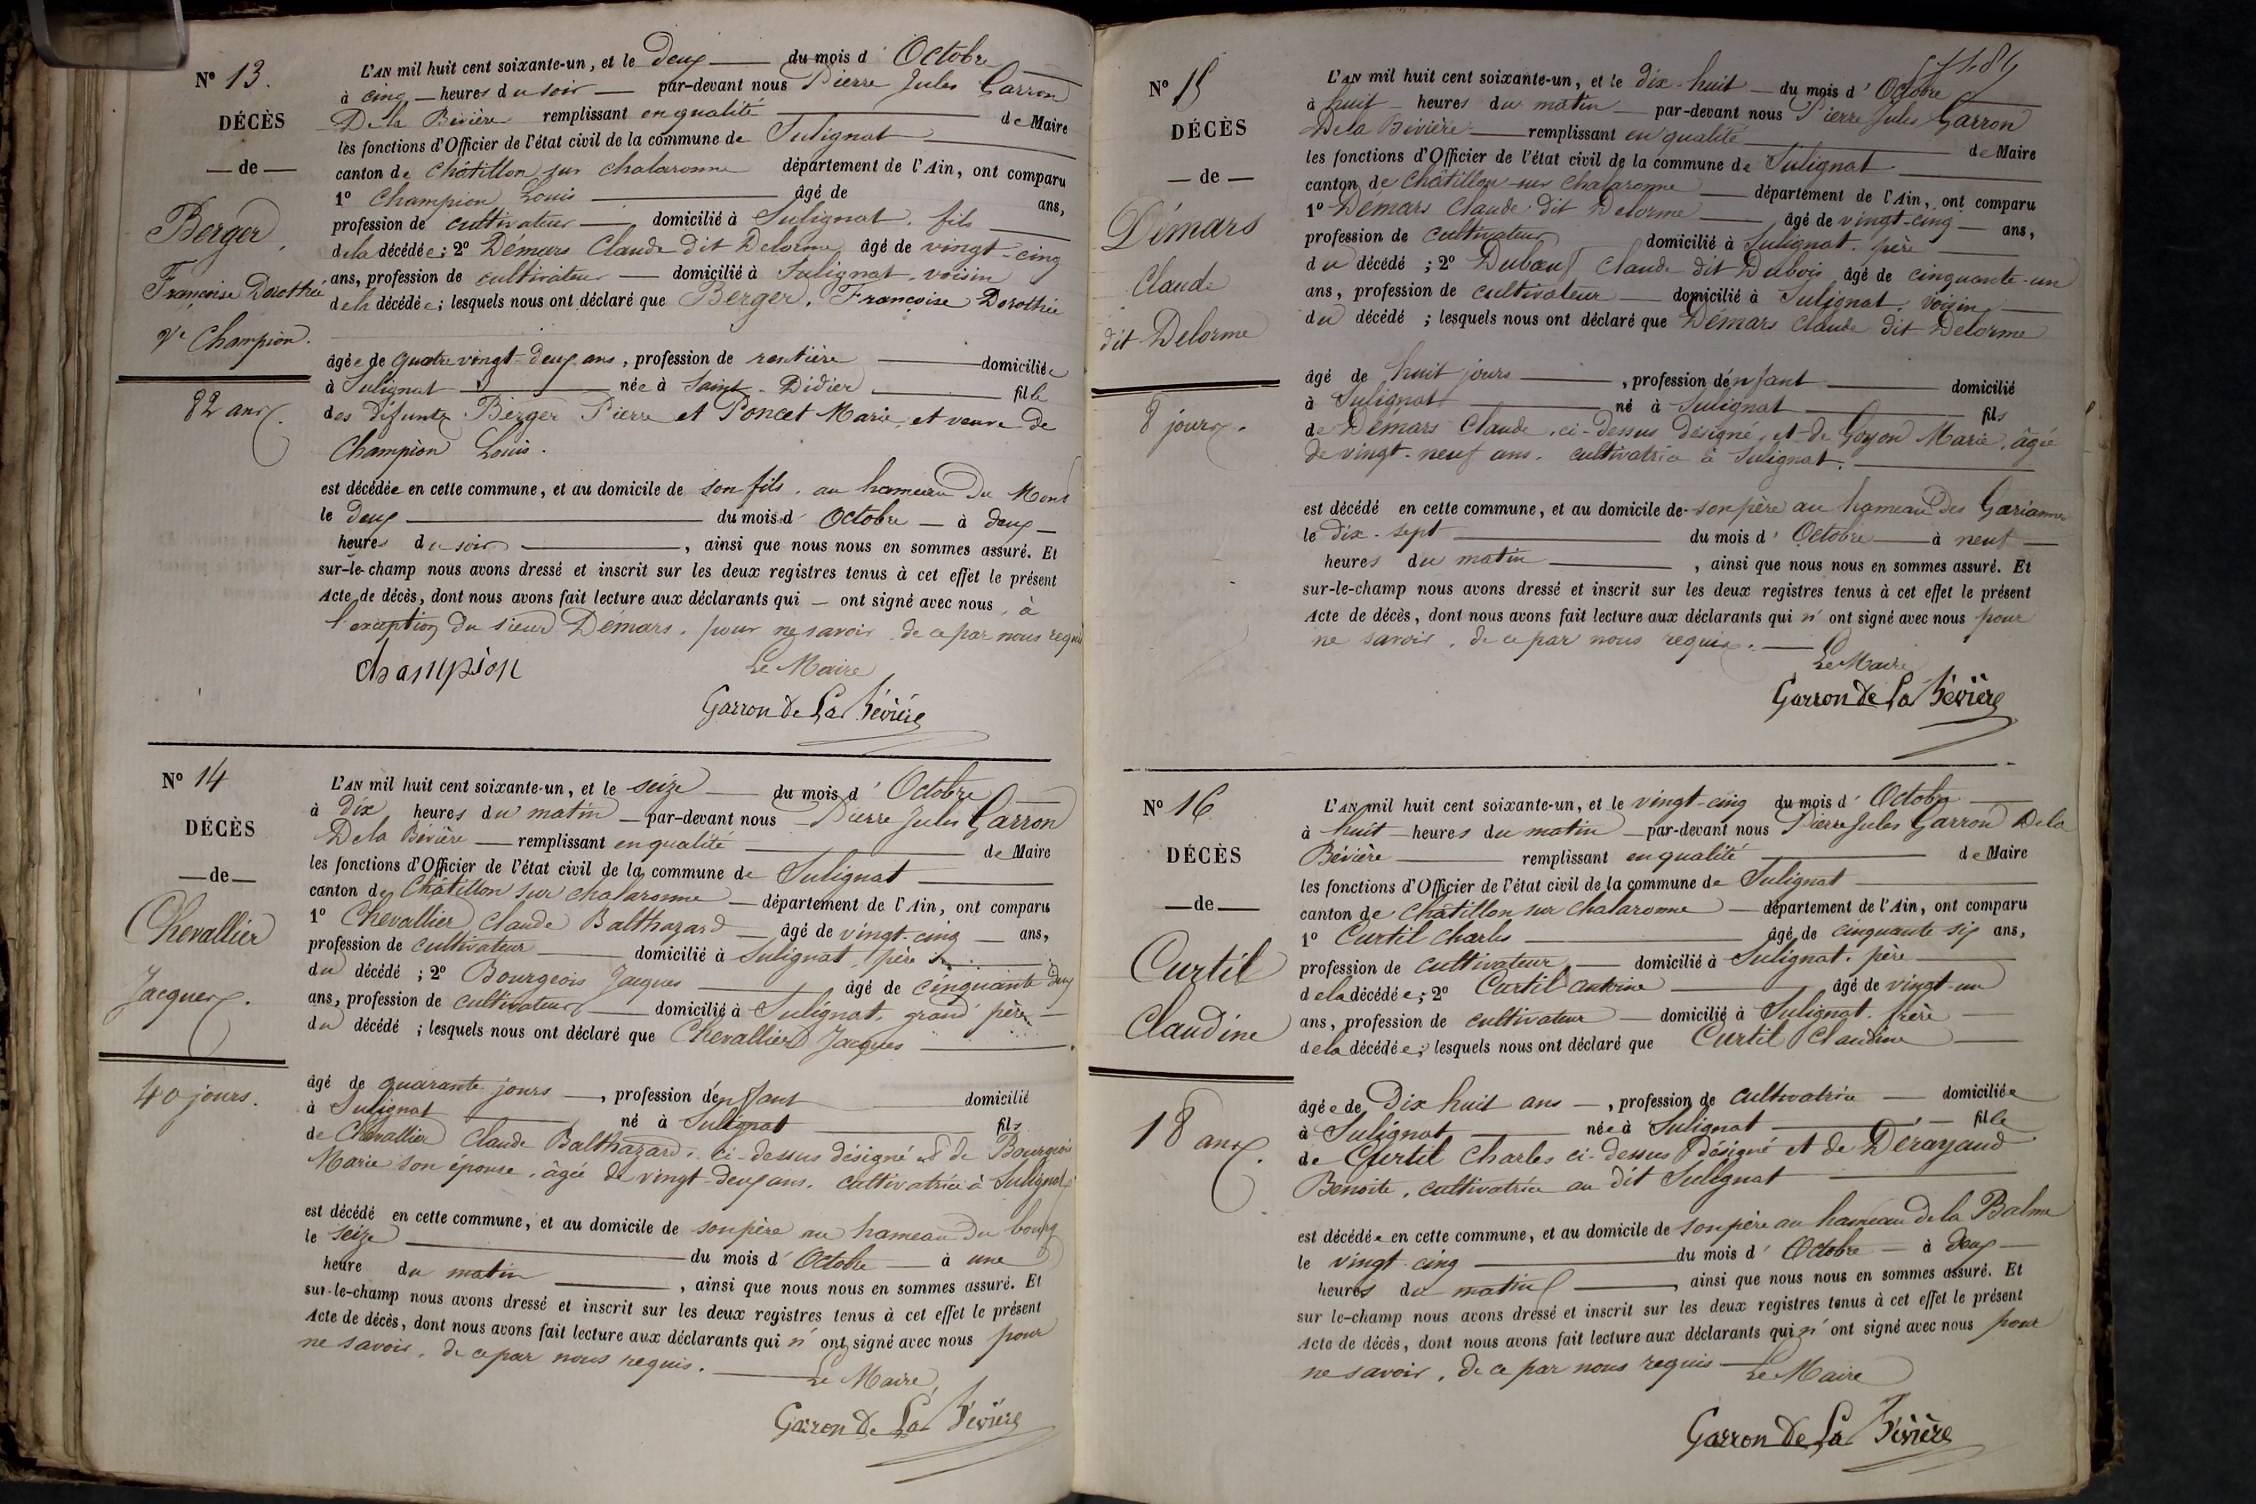 N° 13.
DÉCÈS
— de —
Berger,
Françoise Dorothée
Ve Champion.
82 ans.
L'AN mil huit cent soixante-un, et le deux — du mois d' Octobre
à cinq — heures du soir — par-devant nous Pierre Jules Garron
De la Bévière remplissant en qualité de Maire
les fonctions d'Officier de l'état civil de la commune de Sulignat
canton de Châtillon sur Chalaronne département de l'Ain, ont comparu
1° Champion Louis — âgé de ans,
profession de cultivateur — domicilié à Sulignat, fils
de la décédée; 2° Démars Claude dit Delorme, âgé de vingt-cinq
ans, profession de cultivateur — domicilié à Sulignat, voisin
de la décédée; lesquels nous ont déclaré que Berger, Françoise Dorothée
âgée de quatre vingt-deux ans, profession de rentière — domiciliée
à Sulignat — née à Saint-Didier — fille
des défunts Berger Pierre et Poncet Marie, et veuve de
Champion Louis.
est décédée en cette commune, et au domicile de son fils, au hameau du Mont
le deux — du mois d' Octobre — à deux —
heures du soir —, ainsi que nous nous en sommes assuré. Et
sur-le-champ nous avons dressé et inscrit sur les deux registres tenus à cet effet le présent
Acte de décès, dont nous avons fait lecture aux déclarants qui — ont signé avec nous, à
l'exception du sieur Démars, pour ne savoir, de ce par nous requis
Champion Le Maire
Garron De La Bévière
N° 14
DÉCÈS
— de —
Chevallier
Jacques.
40 jours.
L'AN mil huit cent soixante-un, et le seize — du mois d' Octobre
à dix heures du matin — par-devant nous Pierre Jules Garron
De la Bévière — remplissant en qualité — de Maire
les fonctions d'Officier de l'état civil de la commune de Sulignat
canton de Châtillon sur Chalaronne — département de l'Ain, ont comparu
1° Chevallier Claude Balthazard — âgé de vingt-cinq — ans,
profession de cultivateur — domicilié à Sulignat, père
du décédé; 2° Bourgeois Jacques — âgé de cinquante deux
ans, profession de cultivateur — domicilié à Sulignat, grand père —
du décédé; lesquels nous ont déclaré que Chevallier Jacques —
âgé de quarante jours —, profession d'enfant domicilié
à Sulignat — né à Sulignat — fils
de Chevallier Claude Balthazard, ci-dessus désigné et de Bourgeois
Marie son épouse, âgée de vingt-deux ans, cultivatrice à Sulignat
est décédé en cette commune, et au domicile de son père au hameau du bourg
le seize — du mois d' Octobre — à une
heure du matin —, ainsi que nous nous en sommes assuré. Et
sur-le-champ nous avons dressé et inscrit sur les deux registres tenus à cet effet le présent
Acte de décès, dont nous avons fait lecture aux déclarants qui n'ont signé avec nous pour
ne savoir, de ce par nous requis. —
Le Maire,
Garron De La Bévière
N° 15
DÉCÈS
— de —
Démars
Claude
dit Delorme
8 jours.
L'AN mil huit cent soixante-un, et le dix-huit — du mois d' Octobre
à huit — heures du matin — par-devant nous Pierre Jules Garron
De la Bévière — remplissant en qualité — de Maire
les fonctions d'Officier de l'état civil de la commune de Sulignat
canton de Châtillon-sur Chalaronne — département de l'Ain, ont comparu
1° Démars Claude dit Delorme — âgé de vingt-cinq — ans,
profession de cultivateur domicilié à Sulignat, père
du décédé; 2° Dubœuf Claude dit Dubois, âgé de cinquante-un
ans, profession de cultivateur — domicilié à Sulignat, voisin
du décédé; lesquels nous ont déclaré que Démars Claude dit Delorme
âgé de huit jours —, profession d'enfant — domicilié
à Sulignat — né à Sulignat — fils
de Démars Claude, ci-dessus désigné, et de Goyon Marie, âgée
de vingt-neuf ans, cultivatrice à Sulignat. —
est décédé en cette commune, et au domicile de son père au hameau des
le dix-sept — du mois d' Octobre — à neuf —
heures du matin —, ainsi que nous nous en sommes assuré. Et
sur-le-champ nous avons dressé et inscrit sur les deux registres tenus à cet effet le présent
Acte de décès, dont nous avons fait lecture aux déclarants qui n'ont signé avec nous pour
ne savoir, de ce par nous requis. —
Le Maire
Garron De La Bévière
N° 16
DÉCÈS
— de —
Curtil
Claudine
18 ans.
L'AN mil huit cent soixante-un, et le vingt-cinq du mois d' Octobre —
à huit — heures du matin — par-devant nous Pierre Jules Garron De la
Bévière — remplissant en qualité — de Maire
les fonctions d'Officier de l'état civil de la commune de Sulignat —
canton de Châtillon sur Chalaronne — département de l'Ain, ont comparu
1° Curtil Charles — âgé de cinquante six ans,
profession de cultivateur — domicilié à Sulignat, père —
de la décédée; 2° Curtil Antoine — âgé de vingt-un
ans, profession de cultivateur — domicilié à Sulignat, frère —
de la décédée; lesquels nous ont déclaré que Curtil Claudine —
âgée de Dix huit ans —, profession de cultivatrice — domiciliée
à Sulignat — née à Sulignat — fille
de Curtil Charles ci-dessus Désigné et de Derayaud
Benoite, cultivatrice au dit Sulignat —
est décédée en cette commune, et au domicile de son père au hameau de la Balme
le vingt-cinq — du mois d' Octobre — à deux —
heures du matin —, ainsi que nous nous en sommes assuré. Et
sur-le-champ nous avons dressé et inscrit sur les deux registres tenus à cet effet le présent
Acte de décès, dont nous avons fait lecture aux déclarants qui n'ont signé avec nous pour
ne savoir, de ce par nous requis —
Le Maire
Garron De La Bévière